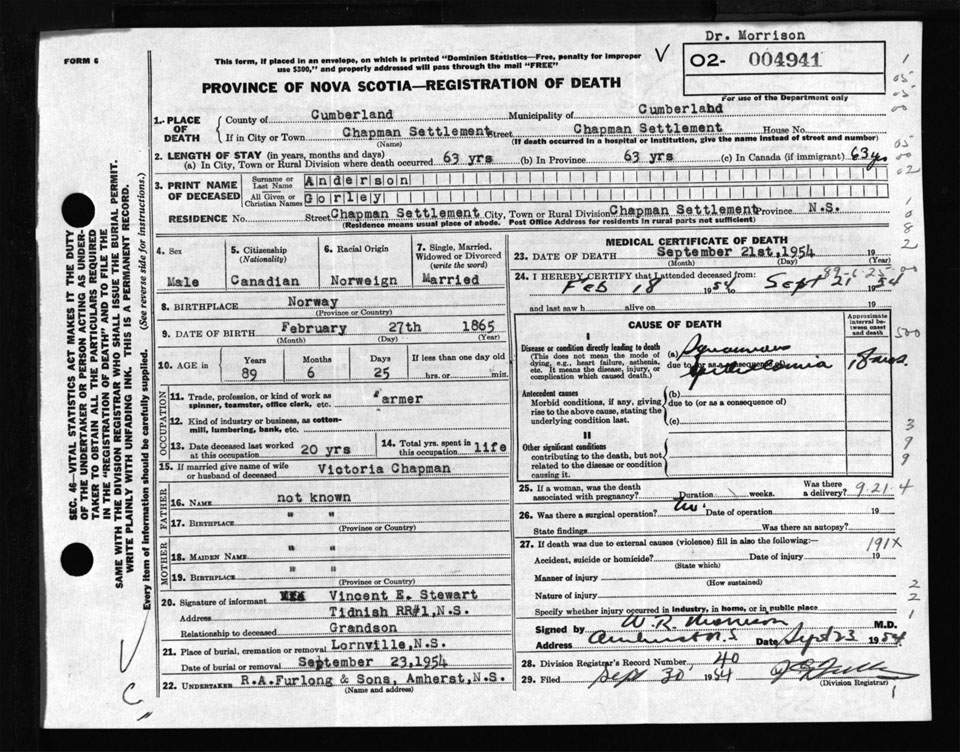 Dr. Morrison
FORM 6
This form, if placed in an envelope, on which is printed "Dominion Statistics—Free, penalty for improper
use $300," and properly addressed will pass through the mail "FREE"
O2- 004941
For use of the Department only
PROVINCE OF NOVA SCOTIA—REGISTRATION OF DEATH
1. PLACE OF DEATH
County of Cumberland Municipality of Cumberland
If in City or Town Chapman Settlement Street Chapman Settlement House No.
(Name) (If death occurred in a hospital or institution, give the name instead of street and number)
2. LENGTH OF STAY (in years, months and days)
(a) In City, Town or Rural Division where death occurred 63 yrs (b) In Province 63 yrs (c) In Canada (if immigrant) 63 yrs
3. PRINT NAME OF DECEASED
Surname or Last Name Anderson
All Given or Christian Names Gorley
RESIDENCE No. Street Chapman Settlement City, Town or Rural Division Chapman Settlement Province N.S.
(Residence means usual place of abode. Post Office Address for residents in rural parts not sufficient)
4. Sex Male
5. Citizenship (Nationality) Canadian
6. Racial Origin Norweign
7. Single, Married, Widowed or Divorced (write the word) Married
8. BIRTHPLACE Norway
(Province or Country)
9. DATE OF BIRTH February 27th 1865
(Month) (Day) (Year)
10. AGE in Years 89 Months 6 Days 25 If less than one day old hrs. or min.
OCCUPATION
11. Trade, profession, or kind of work as spinner, teamster, office clerk, etc. Farmer
12. Kind of industry or business, as cotton-mill, lumbering, bank, etc.
13. Date deceased last worked at this occupation 20 yrs
14. Total yrs. spent in this occupation life
15. If married give name of wife or husband of deceased Victoria Chapman
FATHER
16. NAME not known
17. BIRTHPLACE " "
(Province or Country)
MOTHER
18. MAIDEN NAME " "
19. BIRTHPLACE " "
(Province or Country)
20. Signature of informant Vincent E. Stewart
Address Tidnish RR#1, N.S.
Relationship to deceased Grandson
21. Place of burial, cremation or removal Lornville, N.S.
Date of burial or removal September 23, 1954
22. UNDERTAKER R.A.Furlong & Sons, Amherst, N.S.
(Name and address)
MEDICAL CERTIFICATE OF DEATH
23. DATE OF DEATH September 21st, 1954 19
(Month) (Day)
89-6-25
24. I HEREBY CERTIFY that I attended deceased from:
Feb 18 1954 Sept 21 1954
and last saw h alive on 19
CAUSE OF DEATH
Approximate interval between onset and death
Disease or condition directly leading to death
(This does not mean the mode of dying, e.g., heart failure, asthenia, etc. It means the disease, injury, or complication which caused death.)
(a) Squamous
due to (or as a consequence of) Epithelioma 18 mos.
Antecedent causes
Morbid conditions, if any, giving rise to the above cause, stating the underlying condition last.
(b)
due to (or as a consequence of)
(c)
II
Other significant conditions
contributing to the death, but not related to the disease or condition causing it.
25. If a woman, was the death associated with pregnancy? Duration weeks. Was there a delivery? 9-21-4
26. Was there a surgical operation? no Date of operation 19
State findings Was there an autopsy?
27. If death was due to external causes (violence) fill in also the following:—
191X
Accident, suicide or homicide? Date of injury 19
(State which)
Manner of injury
(How sustained)
Nature of injury
Specify whether injury occurred in industry, in home, or in public place
Signed by W. R. Morrison M.D.
Address Amherst N.S Date Sept 23 1954
28. Division Registrar's Record Number 40
29. Filed Sept 30 1954
(Division Registrar)
SEC. 46—VITAL STATISTICS ACT MAKES IT THE DUTY
OF THE UNDERTAKER OR PERSON ACTING AS UNDER-
TAKER TO OBTAIN ALL THE PARTICULARS REQUIRED
IN THE "REGISTRATION OF DEATH" AND TO FILE THE
SAME WITH THE DIVISION REGISTRAR WHO SHALL ISSUE THE BURIAL PERMIT.
WRITE PLAINLY WITH UNFADING INK. THIS IS A PERMANENT RECORD.
Every item of information should be carefully supplied. (See reverse side for instructions.)